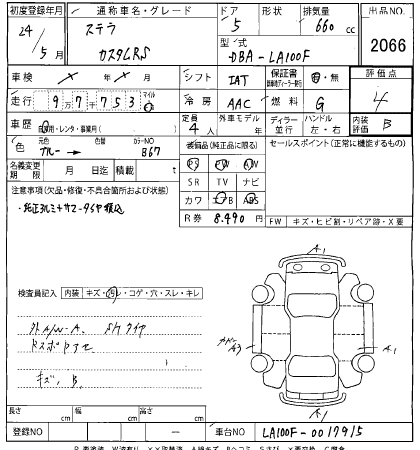 初度登録年月 通称車名・グレード ドア 形状 排気量 出品NO.
24/5月 ステラ カスタムRS 5 660cc 2066
型式 DBA-LA100F
車検 シフト IAT 保証書 有・無 評価点 4
走行 97753 マイル 冷房 AAC 燃料 G
車歴 自家用・レンタ・事業用( ) 定員 4人 外車モデル ディラー 並行 ハンドル 左・右 内装評価 B
色 元色 ブルー→ 色替 カラーNO B67
装備品(純正品に限る) セールスポイント(正常に機能するもの)
名義変更期限 月 日迄 積載 t
PS PW AW
SR TV ナビ
カワ エアB ABS
R券 8.490円
注意事項(欠品・修復・不具合箇所および状態)
・純正アルミ+サマータイヤ積込
FW キズ・ヒビ割・リペア跡・X要
検査員記入 内装 キズ・汚レ・コゲ・穴・スレ・キレ
外A/W-A. SHタイヤ
キズ, B.
A1
A1
A1
長さ cm 幅 cm 高さ cm
登録NO － 車台NO LA100F-0017915